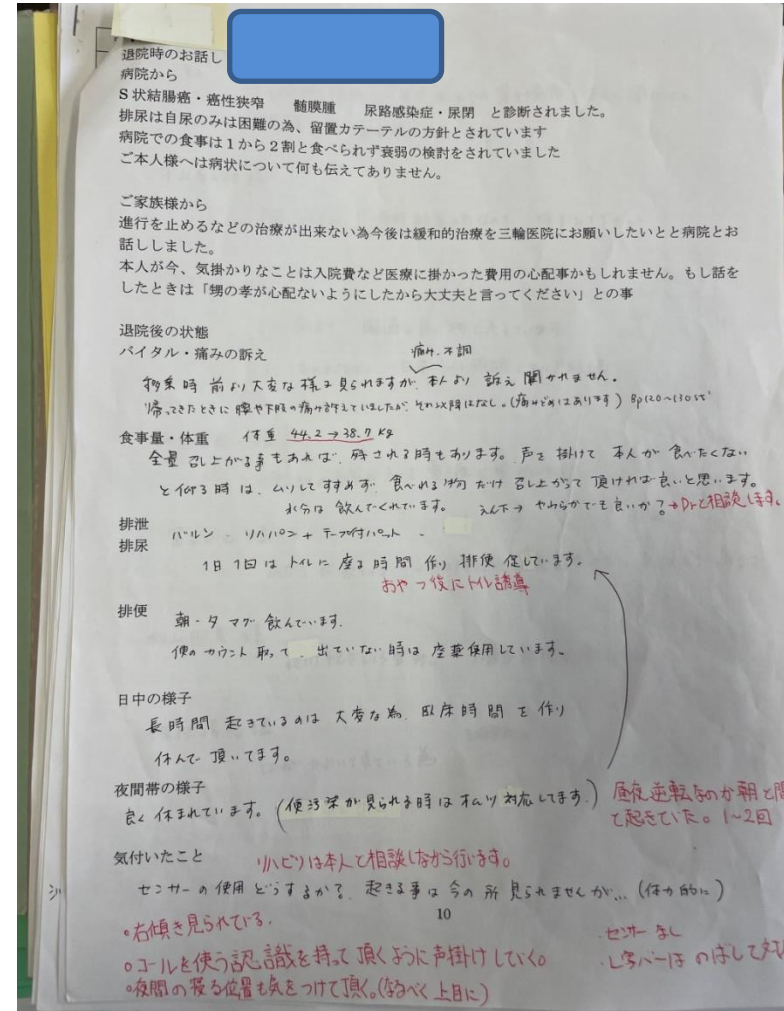 退院時のお話し
病院から
S状結腸癌・癌性狭窄　髄膜腫　尿路感染症・尿閉　と診断されました。
排尿は自尿のみは困難の為、留置カテーテルの方針とされています
病院での食事は１から２割と食べられず衰弱の検討をされていました
ご本人様へは病状について何も伝えてありません。
ご家族様から
進行を止めるなどの治療が出来ない為今後は緩和的治療を三輪医院にお願いしたいとと病院とお
話ししました。
本人が今、気掛かりなことは入院費など医療に掛かった費用の心配事かもしれません。もし話を
したときは「甥の孝が心配ないようにしたから大丈夫と言ってください」との事
退院後の状態
バイタル・痛みの訴え
痛み、不調
移乗時 前より大変な様子見られますが、本人より 訴え 聞かれません。
帰ってきたときに腰や下肢の痛み訴えていましたが、それ以降はなし。(痛み止めはあります) BP120～130
食事量・体重　体重 44.2→38.7kg
全量 召し上がる事もあれば、残される時もあります。声を掛けて 本人が 食べたくない
と仰る時は、ムリしてすすめず、食べれる物だけ 召し上がって 頂ければ良いと思います。
水分は 飲んでくれています。　えん下→ やわらかでも良いか？→Drと相談します。
排泄
排尿
バルン - リハパン + テープ付パット -
1日1回は トイレに 座る時間 作り 排便 促しています。
おやつ後にトイレ誘導
排便　朝・夕 マグ 飲んでいます。
便の カウント 取って、出ていない時は 座薬使用しています。
日中の様子
長時間 起きているのは 大変な為、臥床時間 を 作り
休んで 頂いてます。
夜間帯の様子
良く 休まれています。(便汚染が見られる時は オムツ 対応してます.)
昼夜逆転なのか朝と
と起きていた。1～2回
気付いたこと　リハビリは本人と相談しながら行います。
センサーの使用 どうするか？ 起きる事は 今の所 見られませんが… (体力的に)
10
○右傾き見られている.
・センサーなし
○コールを使う認識を持って 頂くように声掛けしていく。
・L字バーは のばして
○夜間の寝る位置も気をつけて頂く。(なるべく上目に)